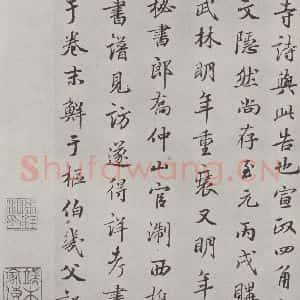 寺詩與此告也宣政四角
文隱然尚存至元丙戌購
武林明年重裝又明年
秘書郎喬仲山官淛西携
書譜見訪遂得詳考書
于卷末鮮于樞伯幾父記
Shufawang.CN